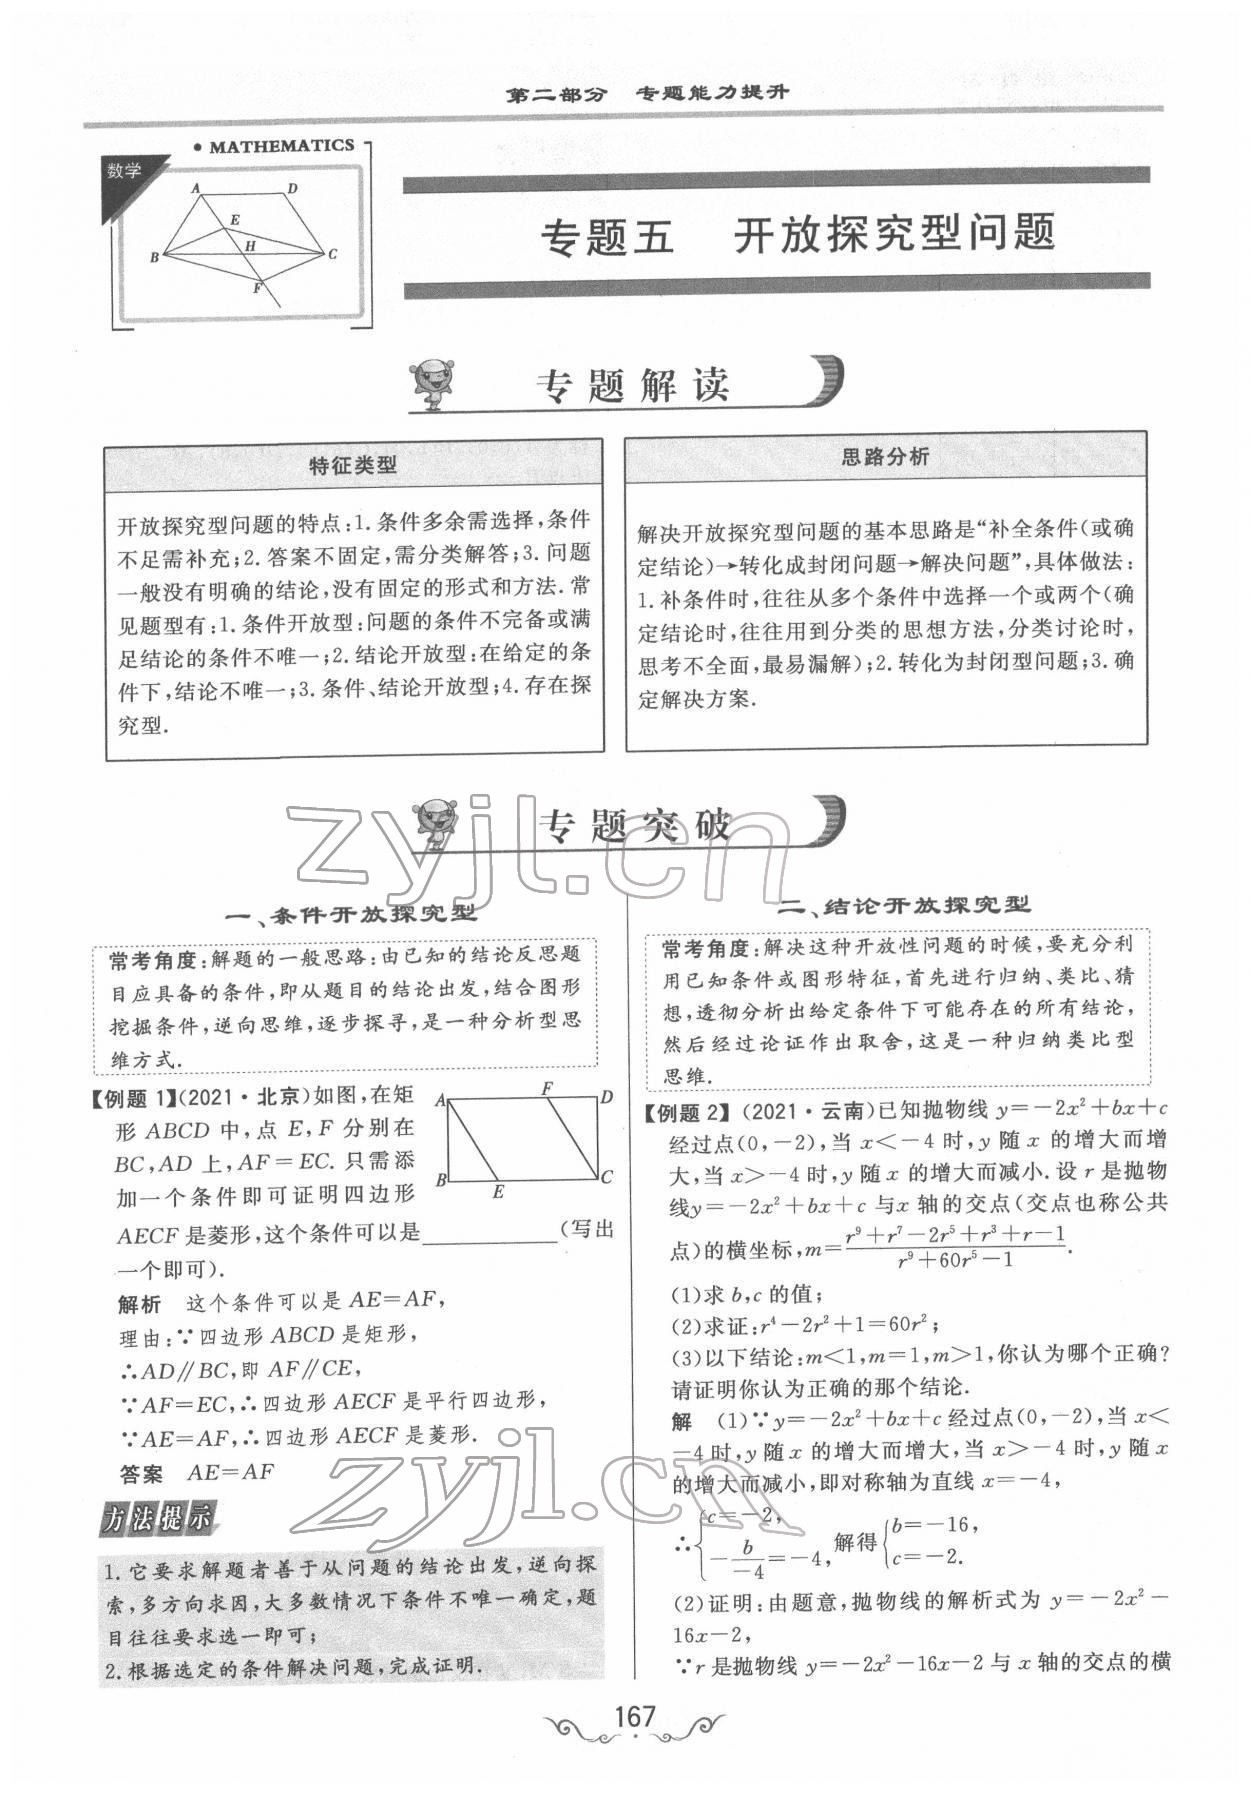 第二部分　专题能力提升
• MATHEMATICS
数学
A
D
E
B
H
C
F
专题五　开放探究型问题
专题解读
特征类型
开放探究型问题的特点:1.条件多余需选择,条件
不足需补充;2.答案不固定,需分类解答;3.问题
一般没有明确的结论,没有固定的形式和方法.常
见题型有:1.条件开放型:问题的条件不完备或满
足结论的条件不唯一;2.结论开放型:在给定的条
件下,结论不唯一;3.条件、结论开放型;4.存在探
究型.
思路分析
解决开放探究型问题的基本思路是“补全条件(或确
定结论)→转化成封闭问题→解决问题”,具体做法:
1.补条件时,往往从多个条件中选择一个或两个(确
定结论时,往往用到分类的思想方法,分类讨论时,
思考不全面,最易漏解);2.转化为封闭型问题;3.确
定解决方案.
专题突破
一、条件开放探究型
常考角度:解题的一般思路:由已知的结论反思题
目应具备的条件,即从题目的结论出发,结合图形
挖掘条件,逆向思维,逐步探寻,是一种分析型思
维方式.
【例题1】(2021·北京)如图,在矩
形ABCD中,点E,F分别在
BC,AD上,AF=EC.只需添
加一个条件即可证明四边形
AECF是菱形,这个条件可以是__________(写出
一个即可).
A
F
D
B
E
C
解析　这个条件可以是AE=AF,
理由:∵四边形ABCD是矩形,
∴AD∥BC,即AF∥CE,
∵AF=EC,∴四边形AECF是平行四边形,
∵AE=AF,∴四边形AECF是菱形.
答案　AE=AF
方法提示
1.它要求解题者善于从问题的结论出发,逆向探
索,多方向求因,大多数情况下条件不唯一确定,题
目往往要求选一即可;
2.根据选定的条件解决问题,完成证明.
二、结论开放探究型
常考角度:解决这种开放性问题的时候,要充分利
用已知条件或图形特征,首先进行归纳、类比、猜
想,透彻分析出给定条件下可能存在的所有结论,
然后经过论证作出取舍,这是一种归纳类比型
思维.
【例题2】(2021·云南)已知抛物线y=-2x²+bx+c
经过点(0,-2),当x<-4时,y随x的增大而增
大,当x>-4时,y随x的增大而减小.设r是抛物
线y=-2x²+bx+c与x轴的交点(交点也称公共
点)的横坐标,m=(r⁹+r⁷-2r⁵+r³+r-1)/(r⁹+60r⁵-1).
(1)求b,c的值;
(2)求证:r⁴-2r²+1=60r²;
(3)以下结论:m<1,m=1,m>1,你认为哪个正确?
请证明你认为正确的那个结论.
解　(1)∵y=-2x²+bx+c经过点(0,-2),当x<
-4时,y随x的增大而增大,当x>-4时,y随x
的增大而减小,即对称轴为直线x=-4,
∴{c=-2, -b/-4=-4, 解得{b=-16, c=-2.
(2)证明:由题意,抛物线的解析式为y=-2x²-
16x-2,
∵r是抛物线y=-2x²-16x-2与x轴的交点的横
167
zyjl.cn
zyjl.cn